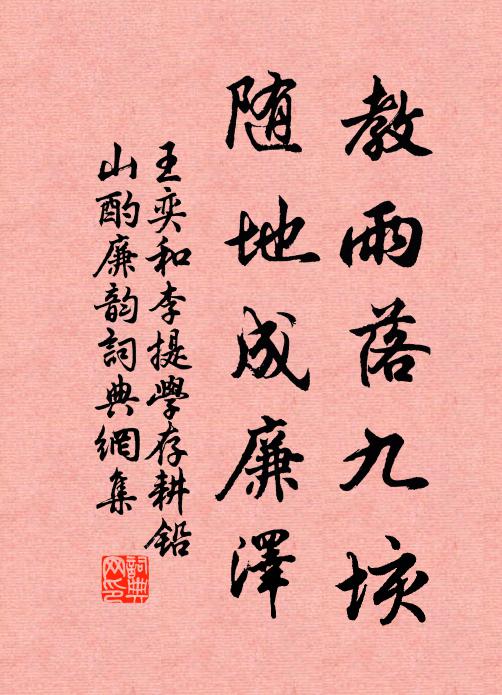 教雨落九垓
随地成廉澤
王奕和李提學存耕鉛
山酌廉韵詞典網集
詞典
网印